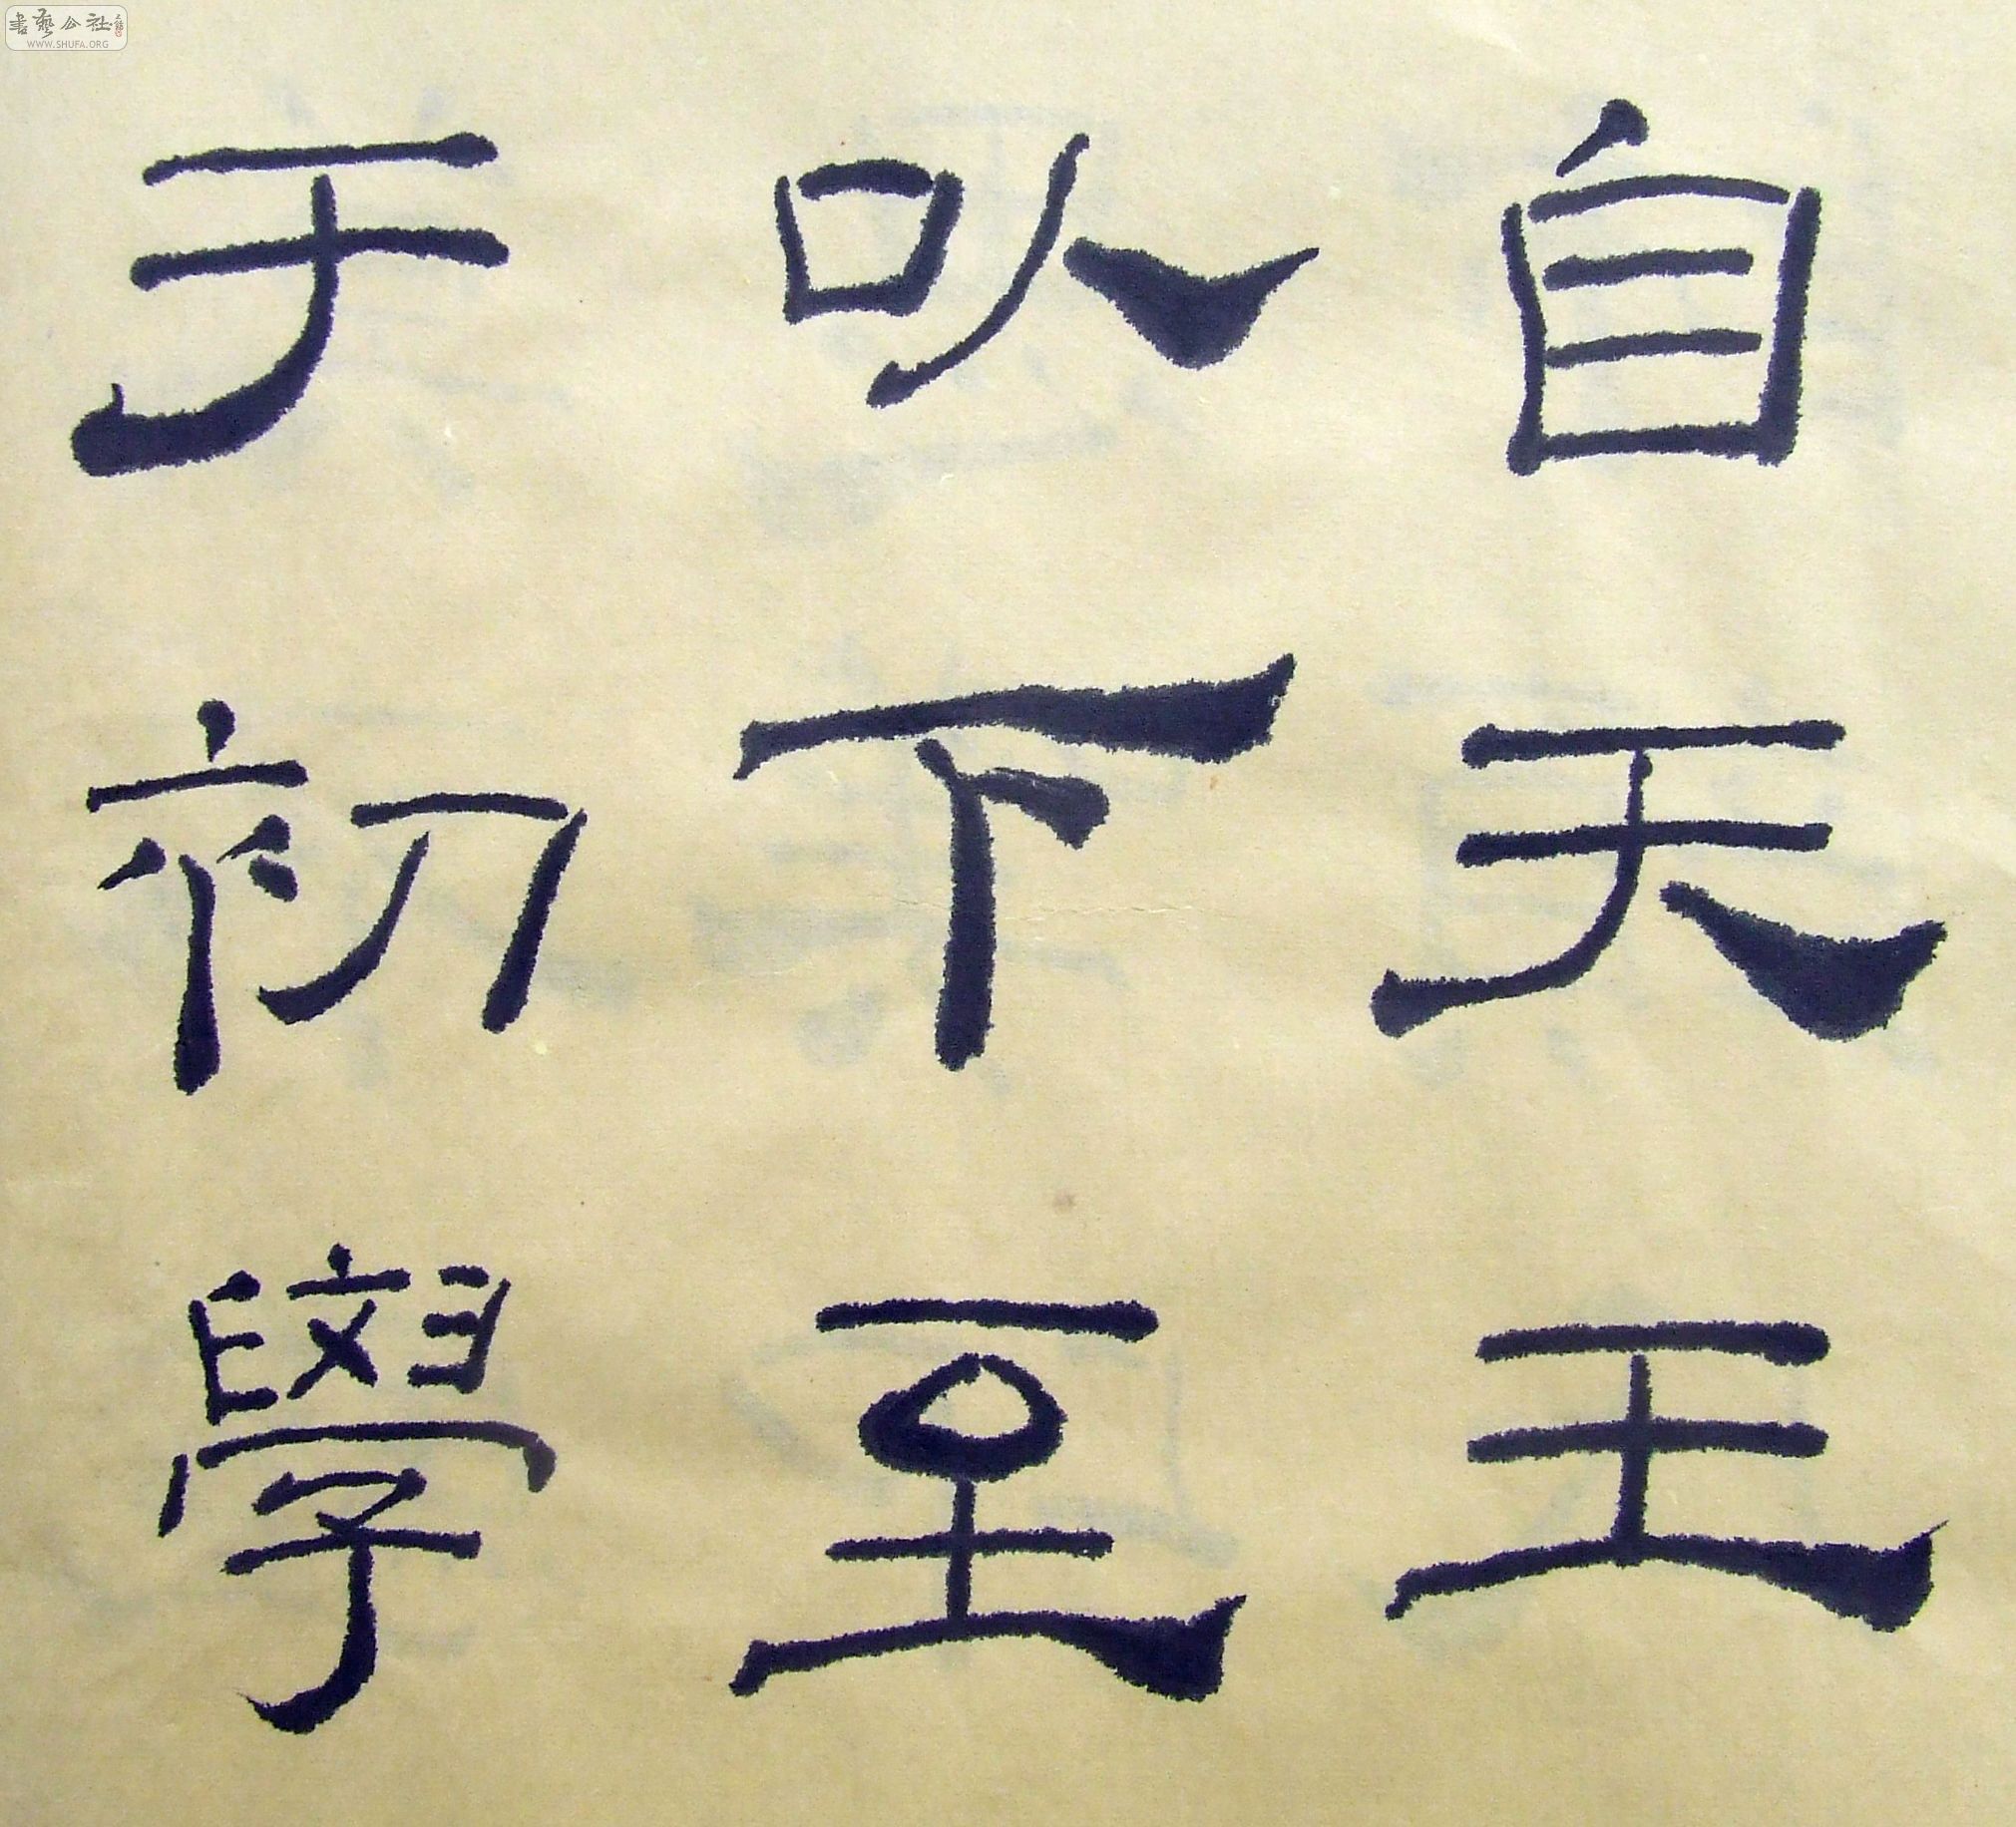 自天王
以下至
于初學
書藝公社
WWW.SHUFA.ORG